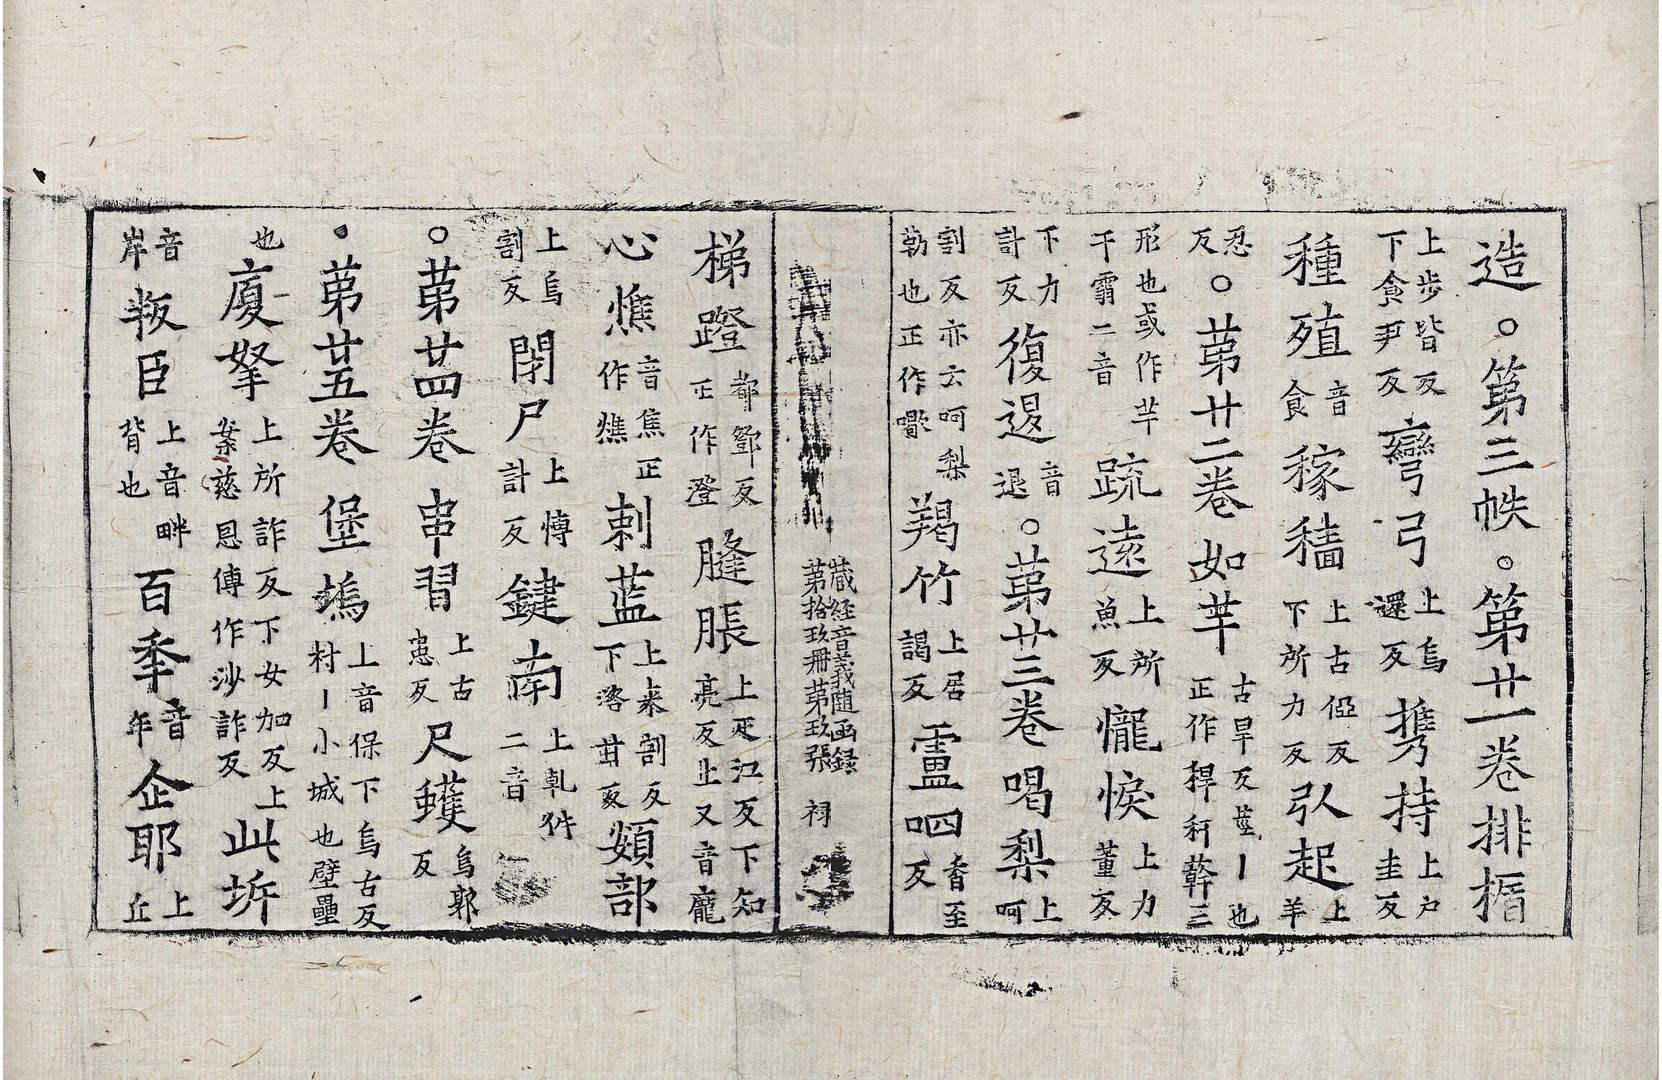 造○第三帙○第廿一卷排楯
上步皆反下食尹反彎弓上烏還反携持上戶圭反
種殖音食稼穡上古俹反下所力反弘起上羊
忍反○第廿二卷如芉古旱反莖丨也正作稈秆簳三
形也或作芉干霜二音疏遠上所魚反㦬悷上力董反
下力計反復逻音退○第廿三卷喝梨上呵
割反亦云呵梨勒也正作嚟羯竹上居謁反䨇呬香至反
藏经音義随函録
第拾玖冊第玖張 祠
梯蹬都鄧反正作隥膖脹上疋江反下知亮反上又音龐
心憔音焦正作燋刺藍上来割反下洛甘反頞部
上烏割反閉尸上博計反鍵南上乹件二音
○第廿四卷串習上古患反尺蠖烏郭反
●第廿五卷堡塢上音保下烏古反村丨小城也壁壘
也廈拏上所詐反下女加反上案慈恩傳作沙詐反此垿
音岸叛臣上音畔背也百秊音年企耶上丘